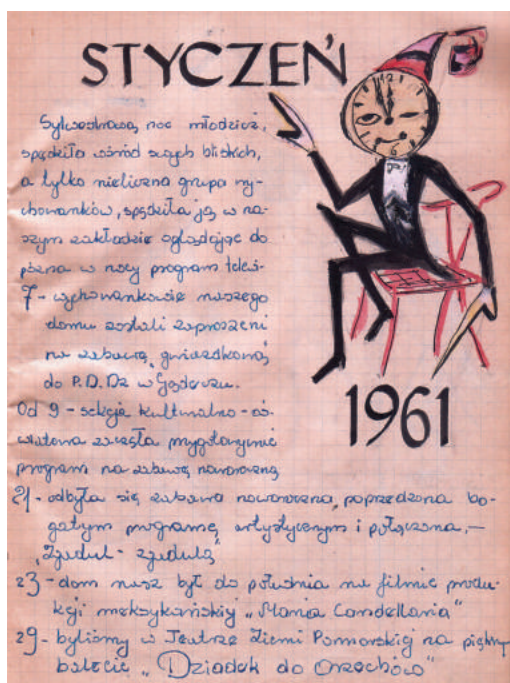 STYCZEŃ
Sylwestrową noc młodzież,
spędziła wśród swych bliskich,
a tylko nieliczna grupa wy-
chowanków, spędziła ją w na-
szym zakładzie oglądając do
późna w nocy program telew-
7 - wychowankowie naszego
domu zostali zaproszeni
na zabawę "gwiazdkową"
do P.D.Dz w
Od 9 - sekcja kulturalno - oś-
wiatowa zaczęła przygotowywać
program na zabawę noworoczną
21 - odbyła się zabawa noworoczna, poprzedzona bo-
gatym programem artystycznym i połączona, -
"Zgaduj - zgadulą"
23 - dom nasz był do południa na filmie produ-
kcji meksykańskiej "Maria Candellaria"
29 - byliśmy w Teatrze Ziemi Pomorskiej na pięknym
balecie "Dziadek do Orzechów"
12
1961